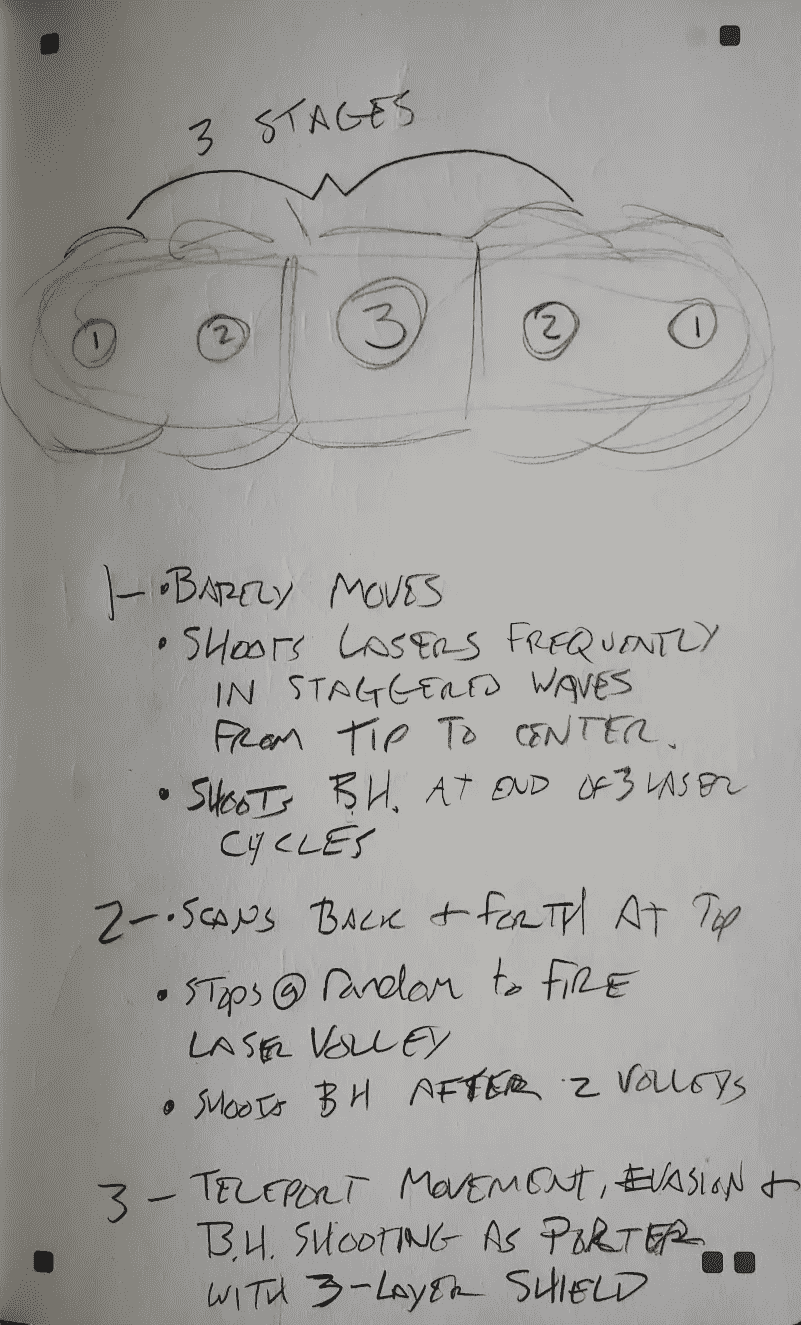 3 STAGES
1 2 3 2 1
1- • BARELY MOVES
• SHOOTS LASERS FREQUENTLY
IN STAGGERED WAVES
FROM TIP TO CENTER.
• SHOOTS B.H. AT END OF 3 LASER
CYCLES
2- • SCANS BACK + FORTH AT TOP
• STOPS @ random to FIRE
LASER VOLLEY
• SHOOTS BH AFTER 2 VOLLEYS
3 - TELEPORT MOVEMENT, EVASION +
B.H. SHOOTING AS PORTER
WITH 3-LAYER SHIELD